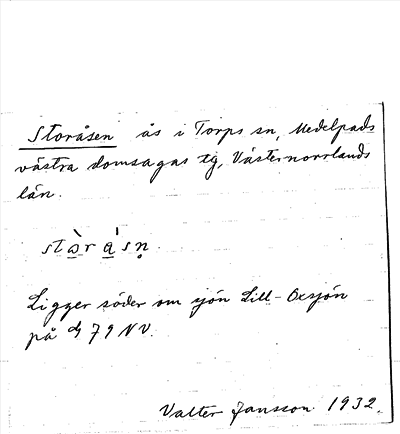 Storåsen ås i Torps sn, Medelpads
västra domsagas tg, Västernorrlands
län.
stɷ̀rásn̥.
Ligger söder om sjön Lill-Oxsjön
på 79 NV.
Valter Jansson 1932.